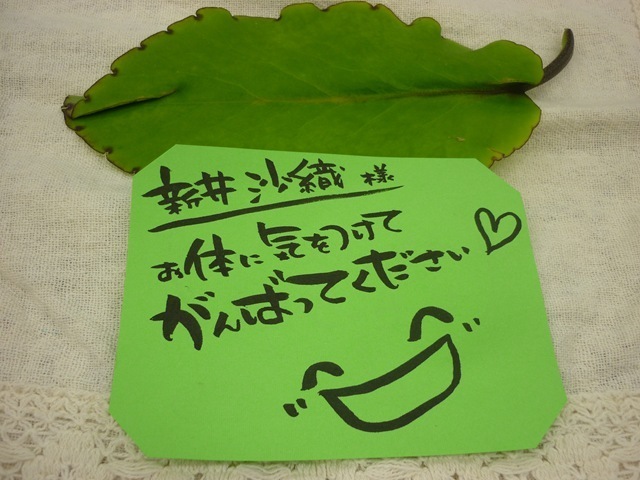 新井沙織様
お体に気をつけて
がんばってください♡